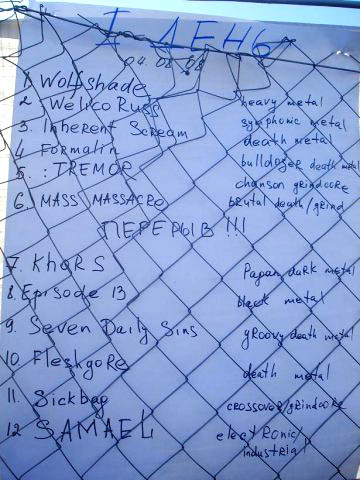 I ДЕНЬ
04. 08
1 Wolfshade heavy metal
2 Welico Russ symphonic metal
3. Inherent Scream death metal
4 Formalin bulldozer death metal
5. : TREMOR chanson grindcore
6. MASS MASSACRe brutal death/grind
ПЕРЕРЫВ !!!
7. KhoRS Pagan dark metal
8. Episode 13 black metal
9. Seven Daily Sins gRoovy death metal
10. FleshgoRe death metal
11. Sickbag CROSSOVER/gRindcoRe
12 SAMAEL electRonic/
industrial